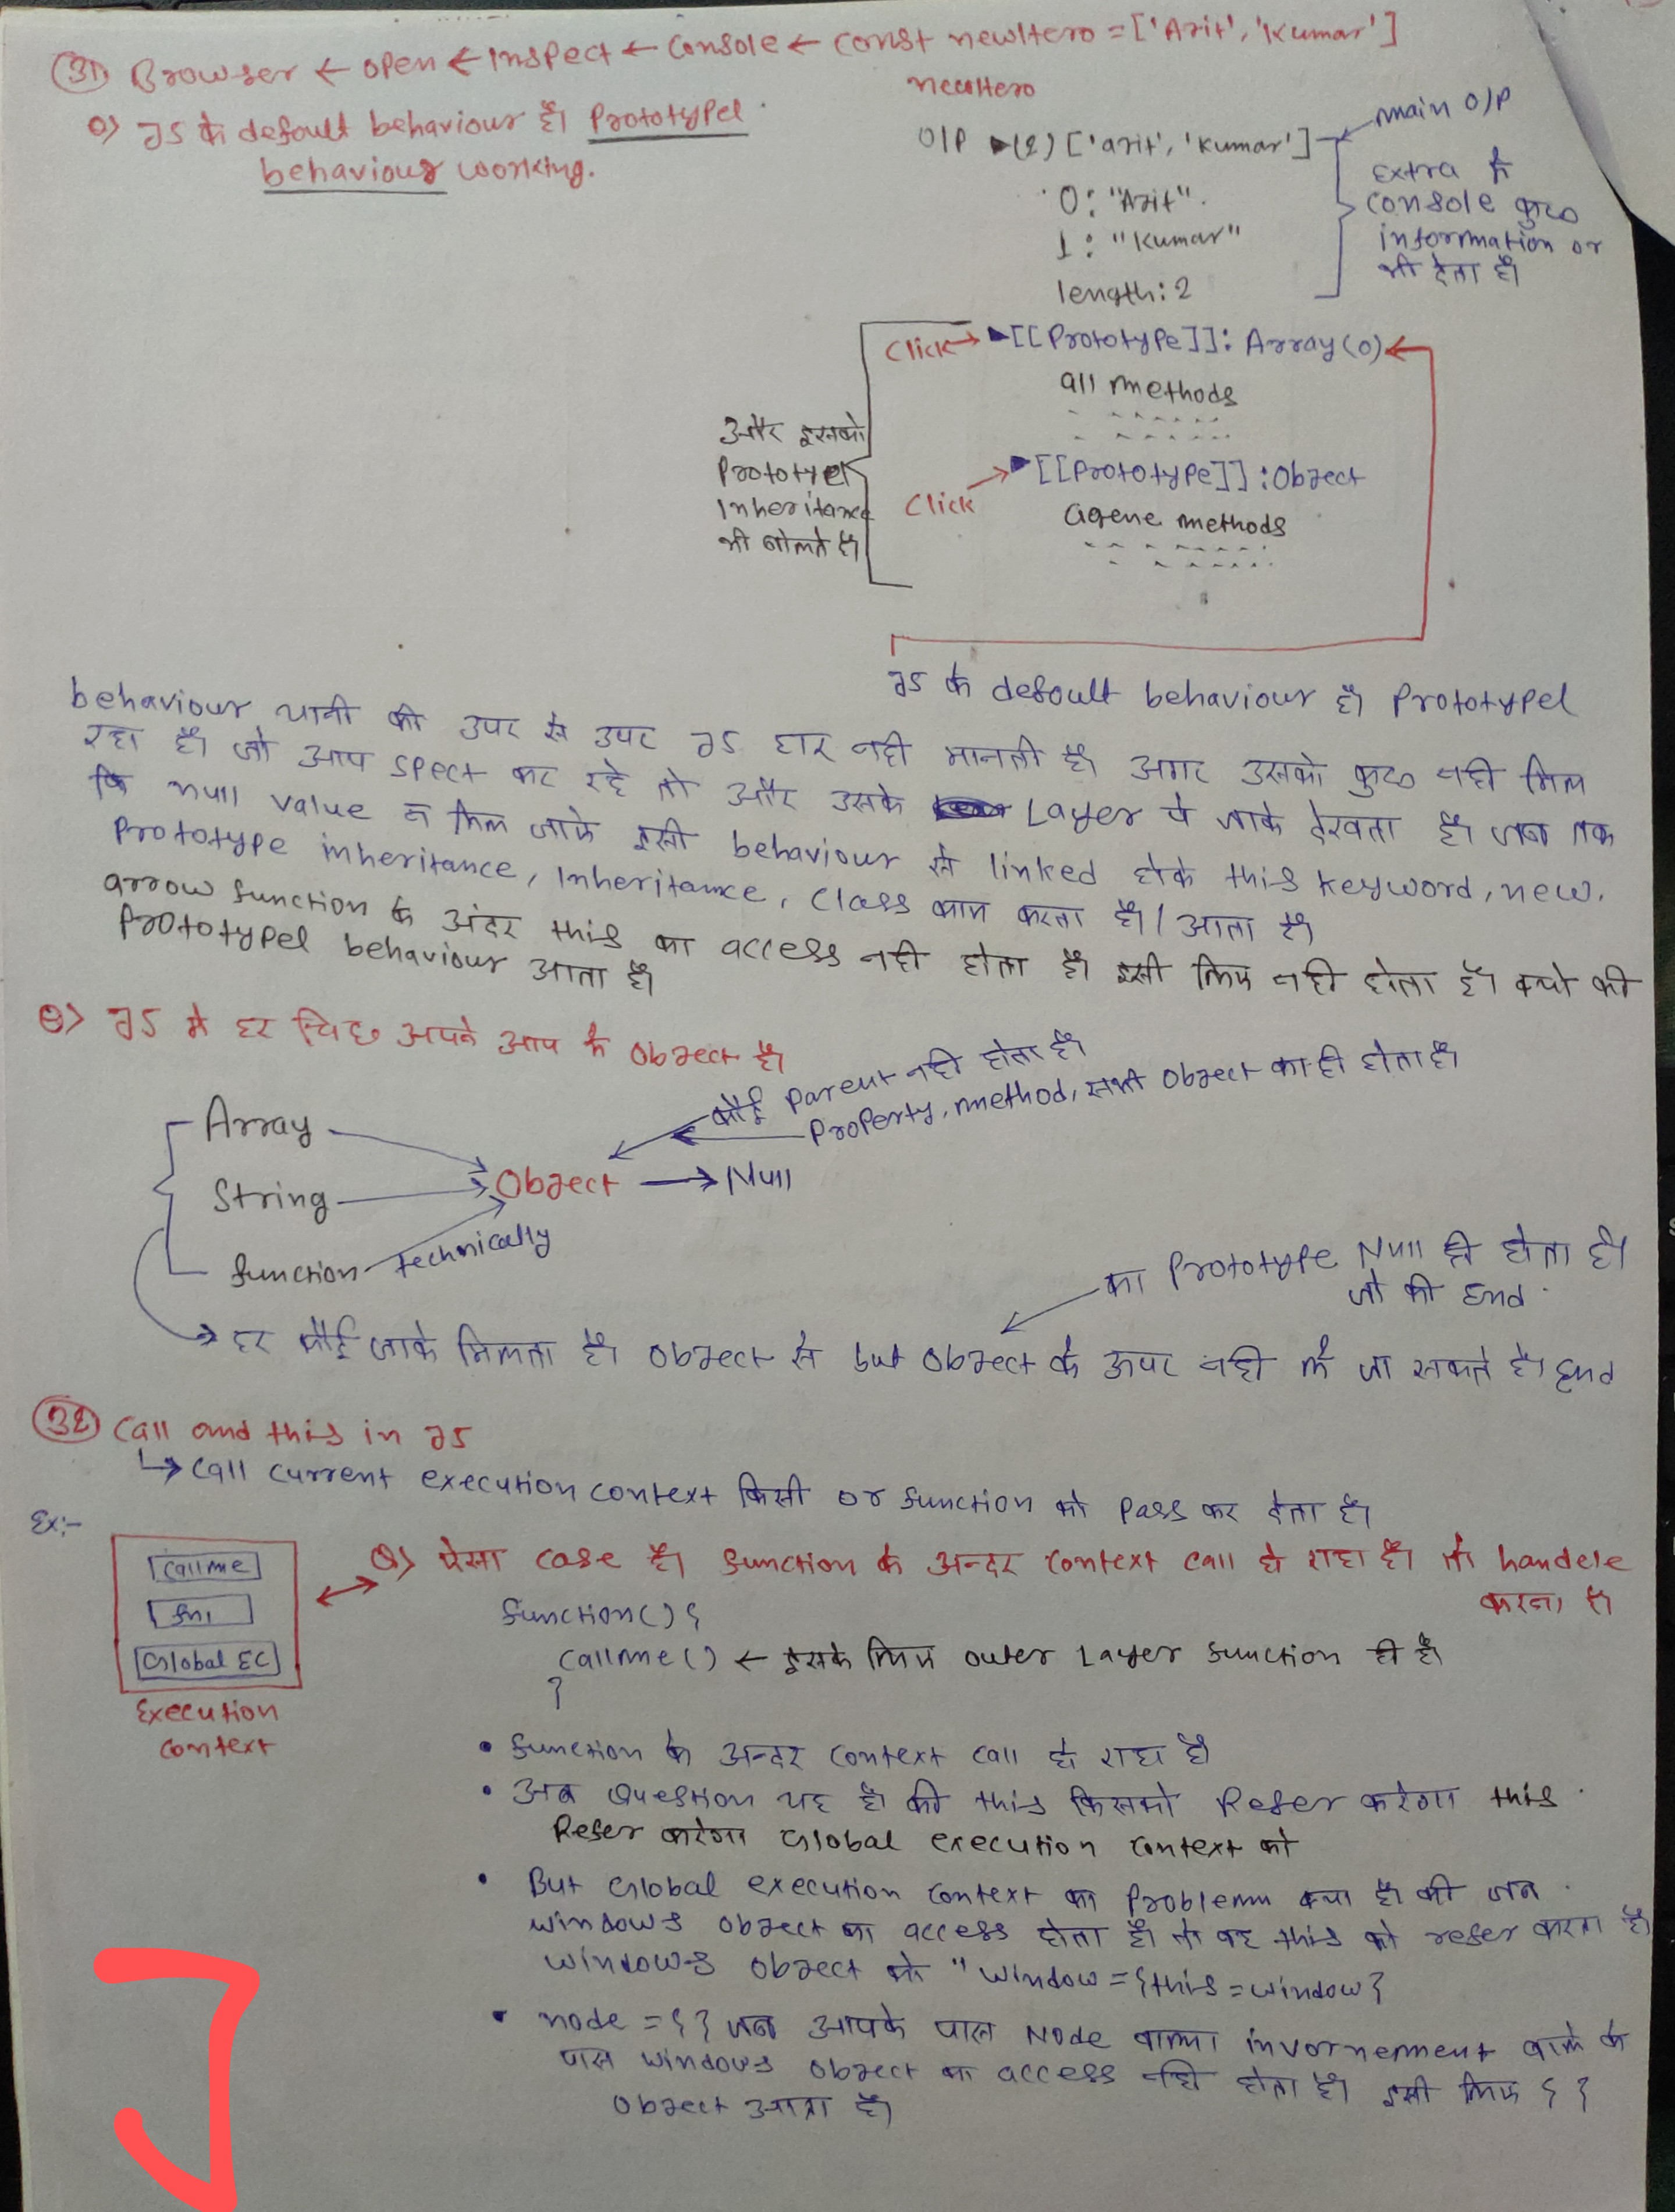 31) Browser ← open ← inspect ← console ← const newHero = ['Arit', 'Kumar']
newHero
⊙> JS के default behaviour है। Prototypel
behaviour working.
O/P ▶(2) ['arit', 'Kumar'] ← main O/P
0: "Arit"
1: "Kumar"
length: 2
Extra में
console कुछ
information or
भी देता है।
Click → ▶[[Prototype]]: Array(0)
all methods
और इसको
Prototypel
Inheritance
भी बोलते है।
Click → ▶[[Prototype]] : Object
Agene methods
JS के default behaviour है। Prototypel
behaviour यानी की उपर से उपर JS हार नही मानती है। अगर उसको कुछ नही मिल
रहा है। जो आप spect कर रहे तो और उसके Layer पे जाके देखता है। जब तक
कि null value न मिल जाके इसी behaviour से linked होके this keyword, new,
Prototype inheritance, Inheritance, Class काम करता है। / आता है।
arrow function के अंदर this का access नही होता है। इसी लिए नही होता है। क्यो की
Prototypel behaviour आता है।
⊙> JS मे हर चिछ अपने आप में Object है।
कोई Parent नही होता है।
Property, method, सभी Object का ही होता है।
Array
String
function technically
Object → Null
का Prototype Null ही होता है।
जो की End
→ हर कोई जाके मिलता है। Object से but Object के ऊपर नही में जा सकते है। End
32) Call and this in JS
↳ Call current execution context किसी or function को Pass कर देता है।
Ex:-
Callme
fn1
Global EC
Execution
context
Q> ऐसा case है। function के अन्दर context call हो राहा है। तो handele
करना है।
function() {
Callme() ← इसके लिए outer Layer function ही है।
}
• function के अन्दर context call हो राहा है।
• अब Question यह है। की this किसको Refer करेगा this
Refer करेगा Global execution context को
• But Global execution context का Problemm क्या है। की जब
windows object का access होता है। तो वह this को refer करता है।
windows object को " window = {this = window}
• node = { } जब आपके पास Node वाला invornemment वाले के
पास windows object का access नही होता है। इसी लिए { }
Object आता है।